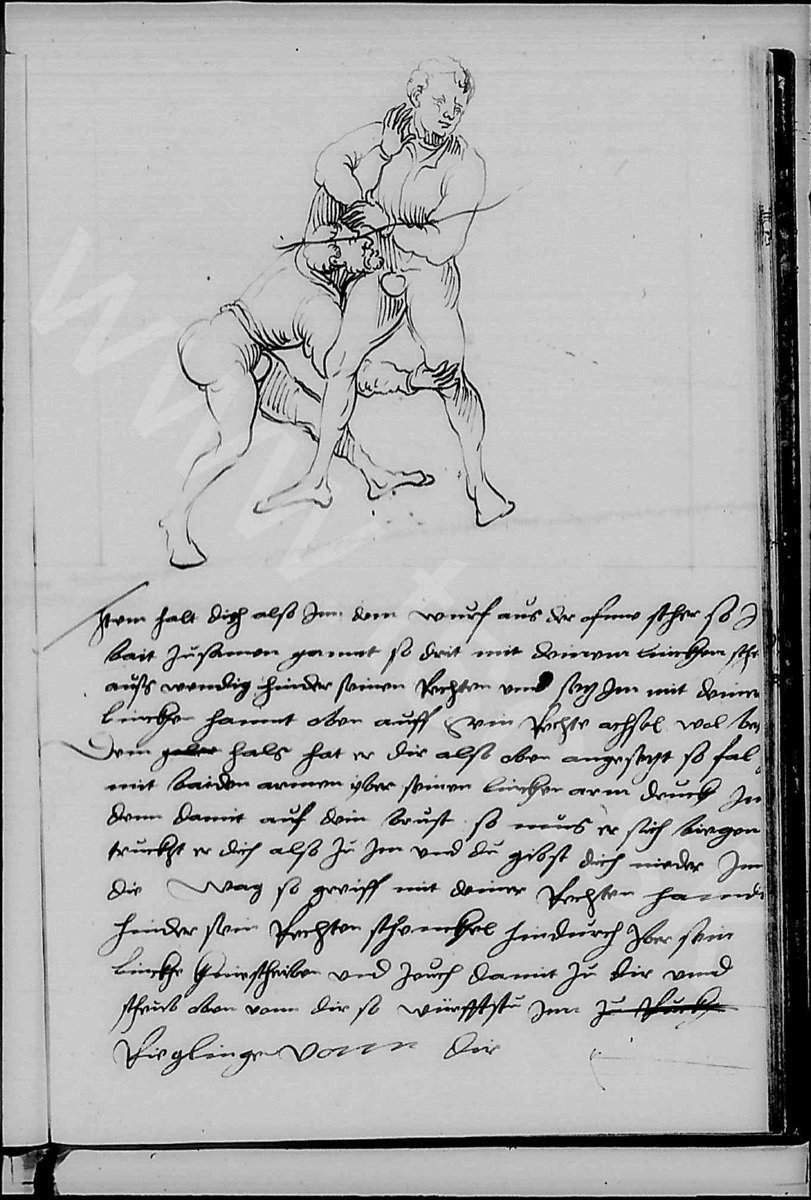 Item halt dich also Inn dem wurf aus der ofnne scher so I
bait zusamen gannt so drit mit deinem linckhen sche
auss wendig hinder seinen Rechten vnd setz Im mit deiner
linckhen hannt oben auff sein Rechte achsel wol bey
dem hals hat er dir also oben angesetzt so fal
mit baiden armen yber seinen linckhen arm druckh In
denn damit auf dein brust so mus er sich biegen
truckht er dich also zu Im vnd du gibst dich nieder Im
die Wag so greiff mit deiner Rechten hannd
hinder sein Rechten schennckhel hindurch yber sein
linckhe kniescheiben vnd zeuch damit zu dir vnnd
scheub oben vonn dir so würffstu Inn
Rieglingen Vonn dir
www.